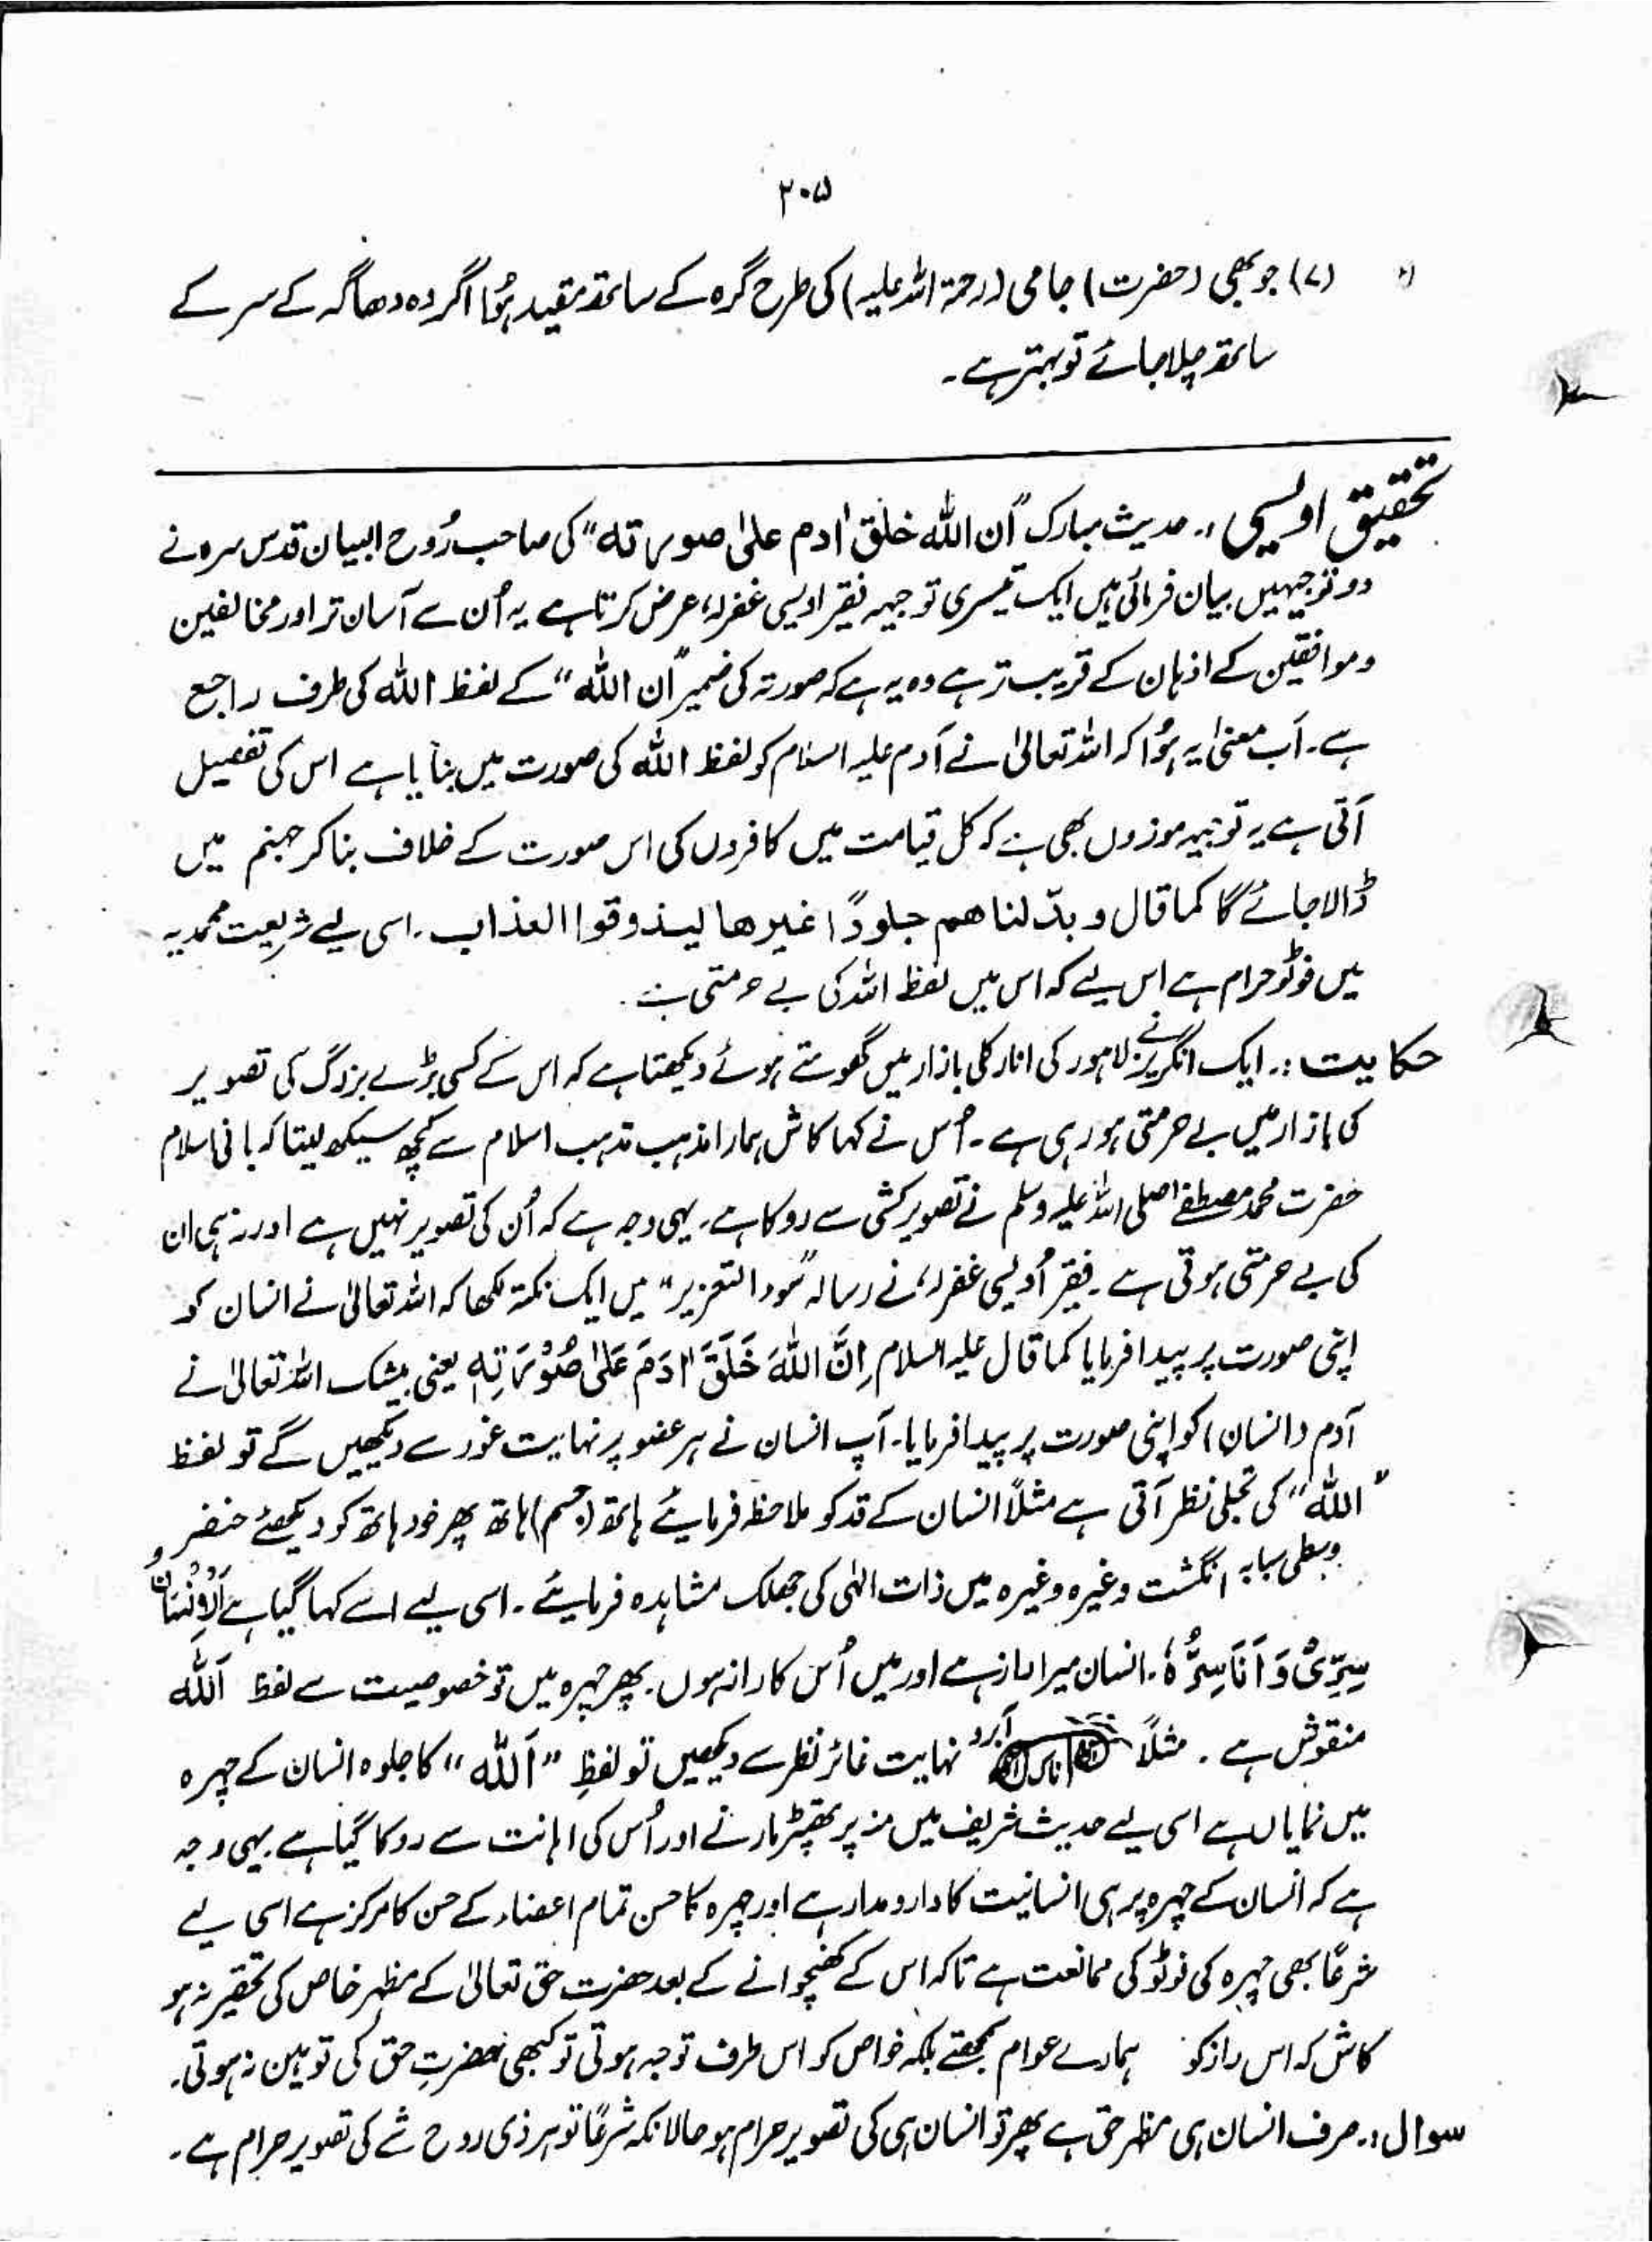 ۲۰۵
(۷) جو بھی (حضرت) جامی (رحمۃ اللہ علیہ) کی طرح گرہ کے ساتھ مقید ہُوا اگر وہ دھاگہ کے سر کے
ساتھ چلا جائے تو بہتر ہے۔
تحقیق اویسی :۔ حدیث مبارک ”ان اللہ خلق اٰدم علیٰ صورتہ“ کی صاحب رُوح البیان قدس سرہ نے
دو توجیہیں بیان فرمائی ہیں ایک تیسری توجیہہ فقیر اویسی غفرلہ، عرض کرتا ہے یہ اُن سے آسان تر اور مخالفین
و موافقین کے اذہان کے قریب تر ہے وہ یہ ہے کہ صورتہ کی ضمیر ”ان اللہ“ کے لفظ اللہ کی طرف راجع
ہے۔ اَب معنیٰ یہ ہُوا کہ اللہ تعالیٰ نے آدم علیہ السلام کو لفظ اللہ کی صورت میں بنایا ہے اس کی تفصیل
آتی ہے یہ توجیہہ موزوں بھی ہے کہ کل قیامت میں کافروں کی اس صورت کے خلاف بنا کر جہنم میں
ڈالا جائے گا کما قال و بدّلناھم جلودًا غیرھا لیذوقوا العذاب۔ اسی لیے شریعت محمدیہ
میں فوٹو حرام ہے اس لیے کہ اس میں لفظ اللہ کی بے حرمتی ہے۔
حکایت :۔ ایک انگریز نے لاہور کی انارکلی بازار میں گھومتے ہوئے دیکھتا ہے کہ اس کے کسی بڑے بزرگ کی تصویر
کی بازار میں بے حرمتی ہو رہی ہے۔ اُس نے کہا کاش ہمارا مذہب مذہب اسلام سے کچھ سیکھ لیتا کہ بانی اسلام
حضرت محمد مصطفےٰ صلی اللہ علیہ وسلم نے تصویر کشی سے روکا ہے۔ یہی وجہ ہے کہ اُن کی تصویر نہیں ہے اور نہ ہی ان
کی بے حرمتی ہوتی ہے۔ فقیر اُویسی غفرلہ، نے رسالہ میں ایک نکتہ لکھا کہ اللہ تعالیٰ نے انسان کو
اپنی صورت پر پیدا فرمایا کما قال علیہ السلام اِنَّ اللہَ خَلَقَ اٰدَمَ عَلیٰ صُوْرَتِہٖ یعنی بیشک اللہ تعالیٰ نے
آدم (انسان) کو اپنی صورت پر پیدا فرمایا۔ آپ انسان نے ہر عضو پر نہایت غور سے دیکھیں گے تو لفظ
”اللہ“ کی تجلی نظر آتی ہے مثلاً انسان کے قد کو ملاحظہ فرمایئے ہاتھ (جسم) ہاتھ پھر خود ہاتھ کو دیکھئے خنصر و
وسطی سبابہ انگشت وغیرہ وغیرہ میں ذات الٰہی کی جھلک مشاہدہ فرمایئے۔ اسی لیے اسے کہا گیا ہے اَلْاِنْسَانُ
سِرِّیْ وَ اَنَا سِرُّہٗ۔ انسان میرا راز ہے اور میں اُس کا راز ہوں۔ پھر چہرہ میں تو خصوصیت سے لفظ اَللہ
منقوش ہے۔ مثلاً ابرو نہایت غائر نظر سے دیکھیں تو لفظِ ”اَللہ“ کا جلوہ انسان کے چہرہ
میں نمایاں ہے اسی لیے حدیث شریف میں منہ پر تھپڑ مارنے اور اُس کی اہانت سے روکا گیا ہے یہی وجہ
ہے کہ انسان کے چہرہ پر ہی انسانیت کا دارومدار ہے اور چہرہ کا حسن تمام اعضاء کے حسن کا مرکز ہے اسی لیے
شرعًا بھی چہرہ کی فوٹو کی ممانعت ہے تاکہ اس کے کھنچوانے کے بعد حضرتِ حق تعالیٰ کے مظہر خاص کی تحقیر نہ ہو
کاش کہ اس راز کو ہمارے عوام سمجھتے بلکہ خواص کو اس طرف توجہ ہوتی تو کبھی حضرتِ حق کی توہین نہ ہوتی۔
سوال :۔ صرف انسان ہی مظہر حق ہے پھر تو انسان ہی کی تصویر حرام ہو حالانکہ شرعًا تو ہر ذی روح شے کی تصویر حرام ہے۔